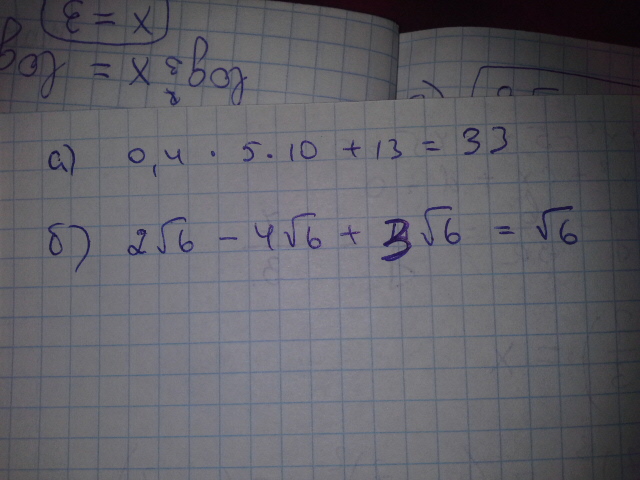 x = 3
а) 0,4 · 5 · 10 + 13 = 33
б) 2√6 - 4√6 + 3√6 = √6